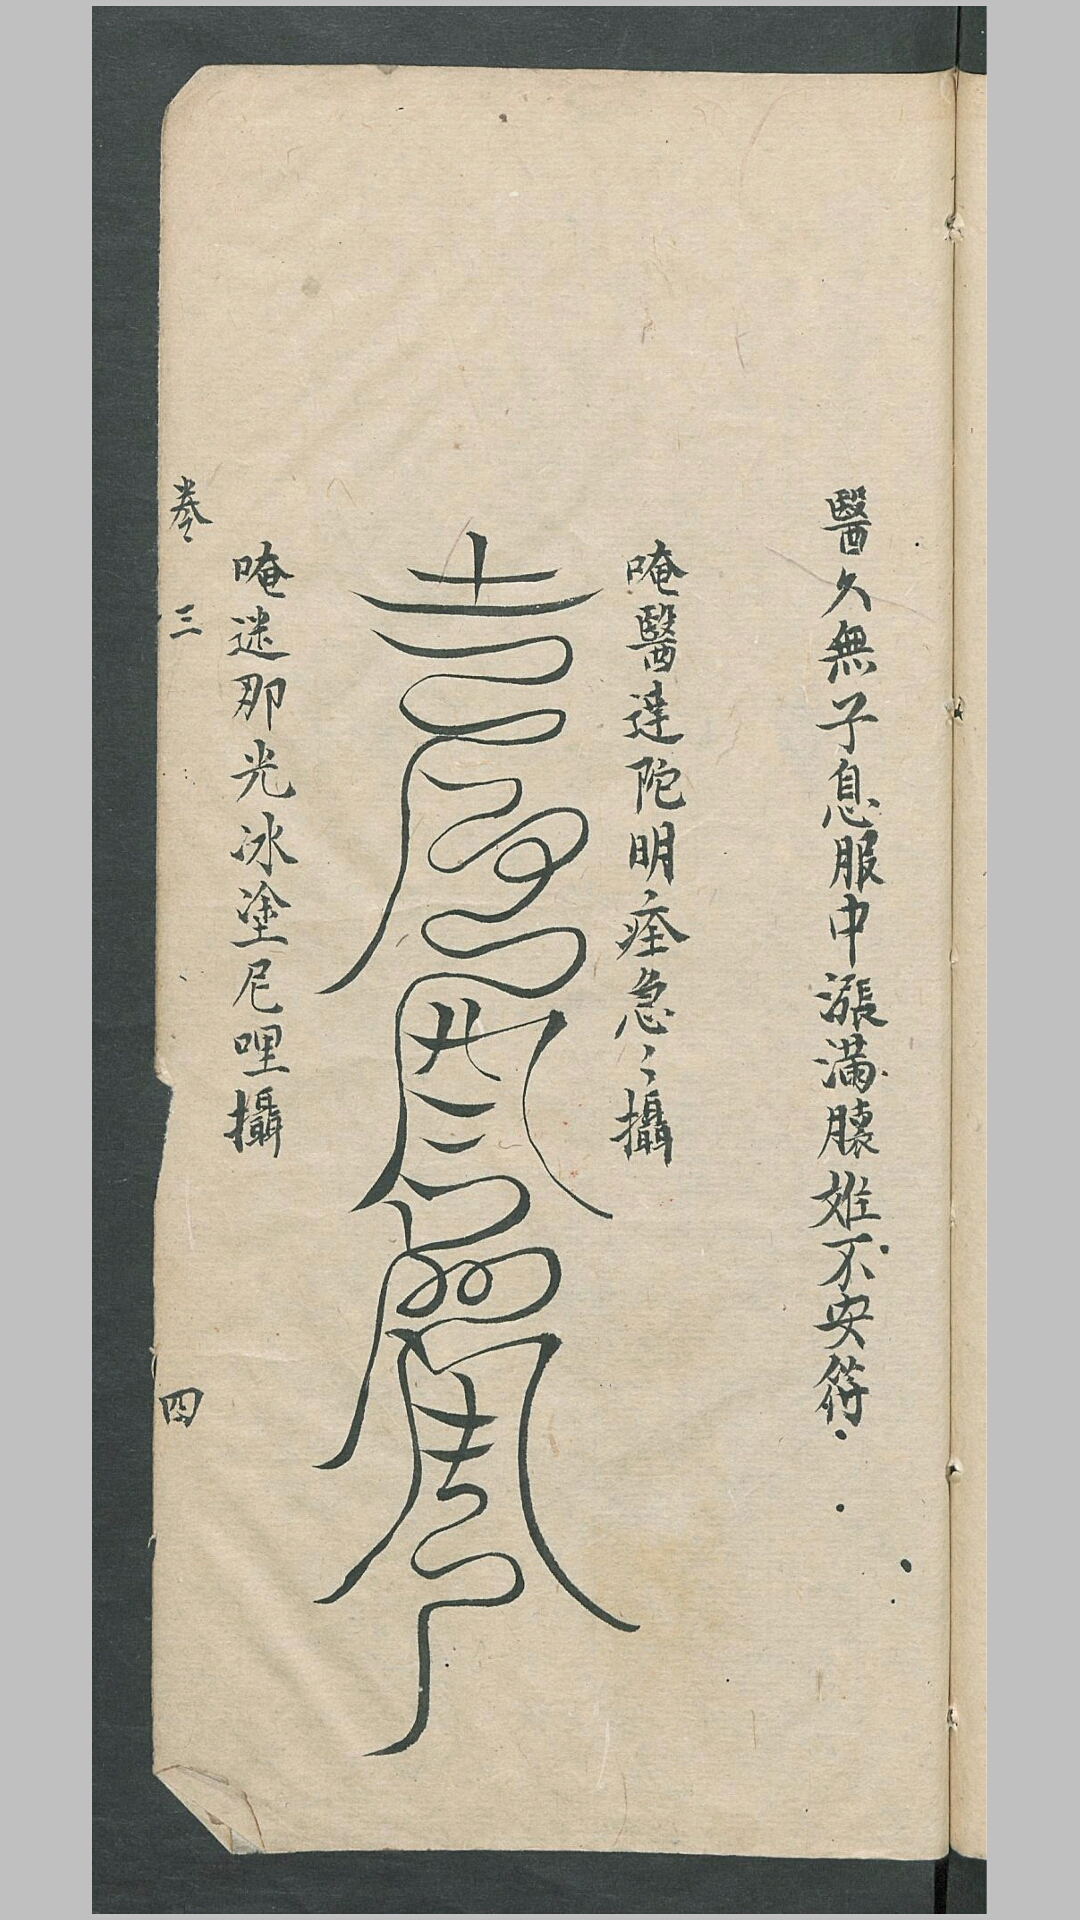 醫久無子息服中漲滿䑋姙不安符
唵醫達陀明痊急〻攝
唵迷那光冰塗尼哩攝
卷三
四